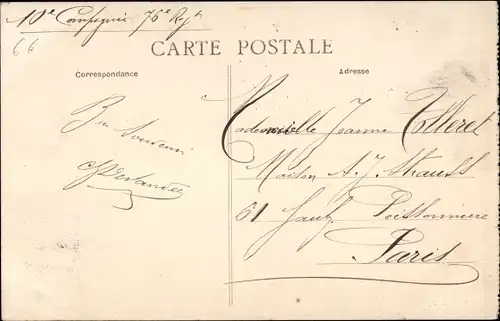 10e Compagnie 76e Regt
66
CARTE POSTALE
Correspondance
Adresse
Bon Souvenir
Mademoiselle Jeanne
Maison A. J. Strauss
61 Faubg Poissonnière
Paris